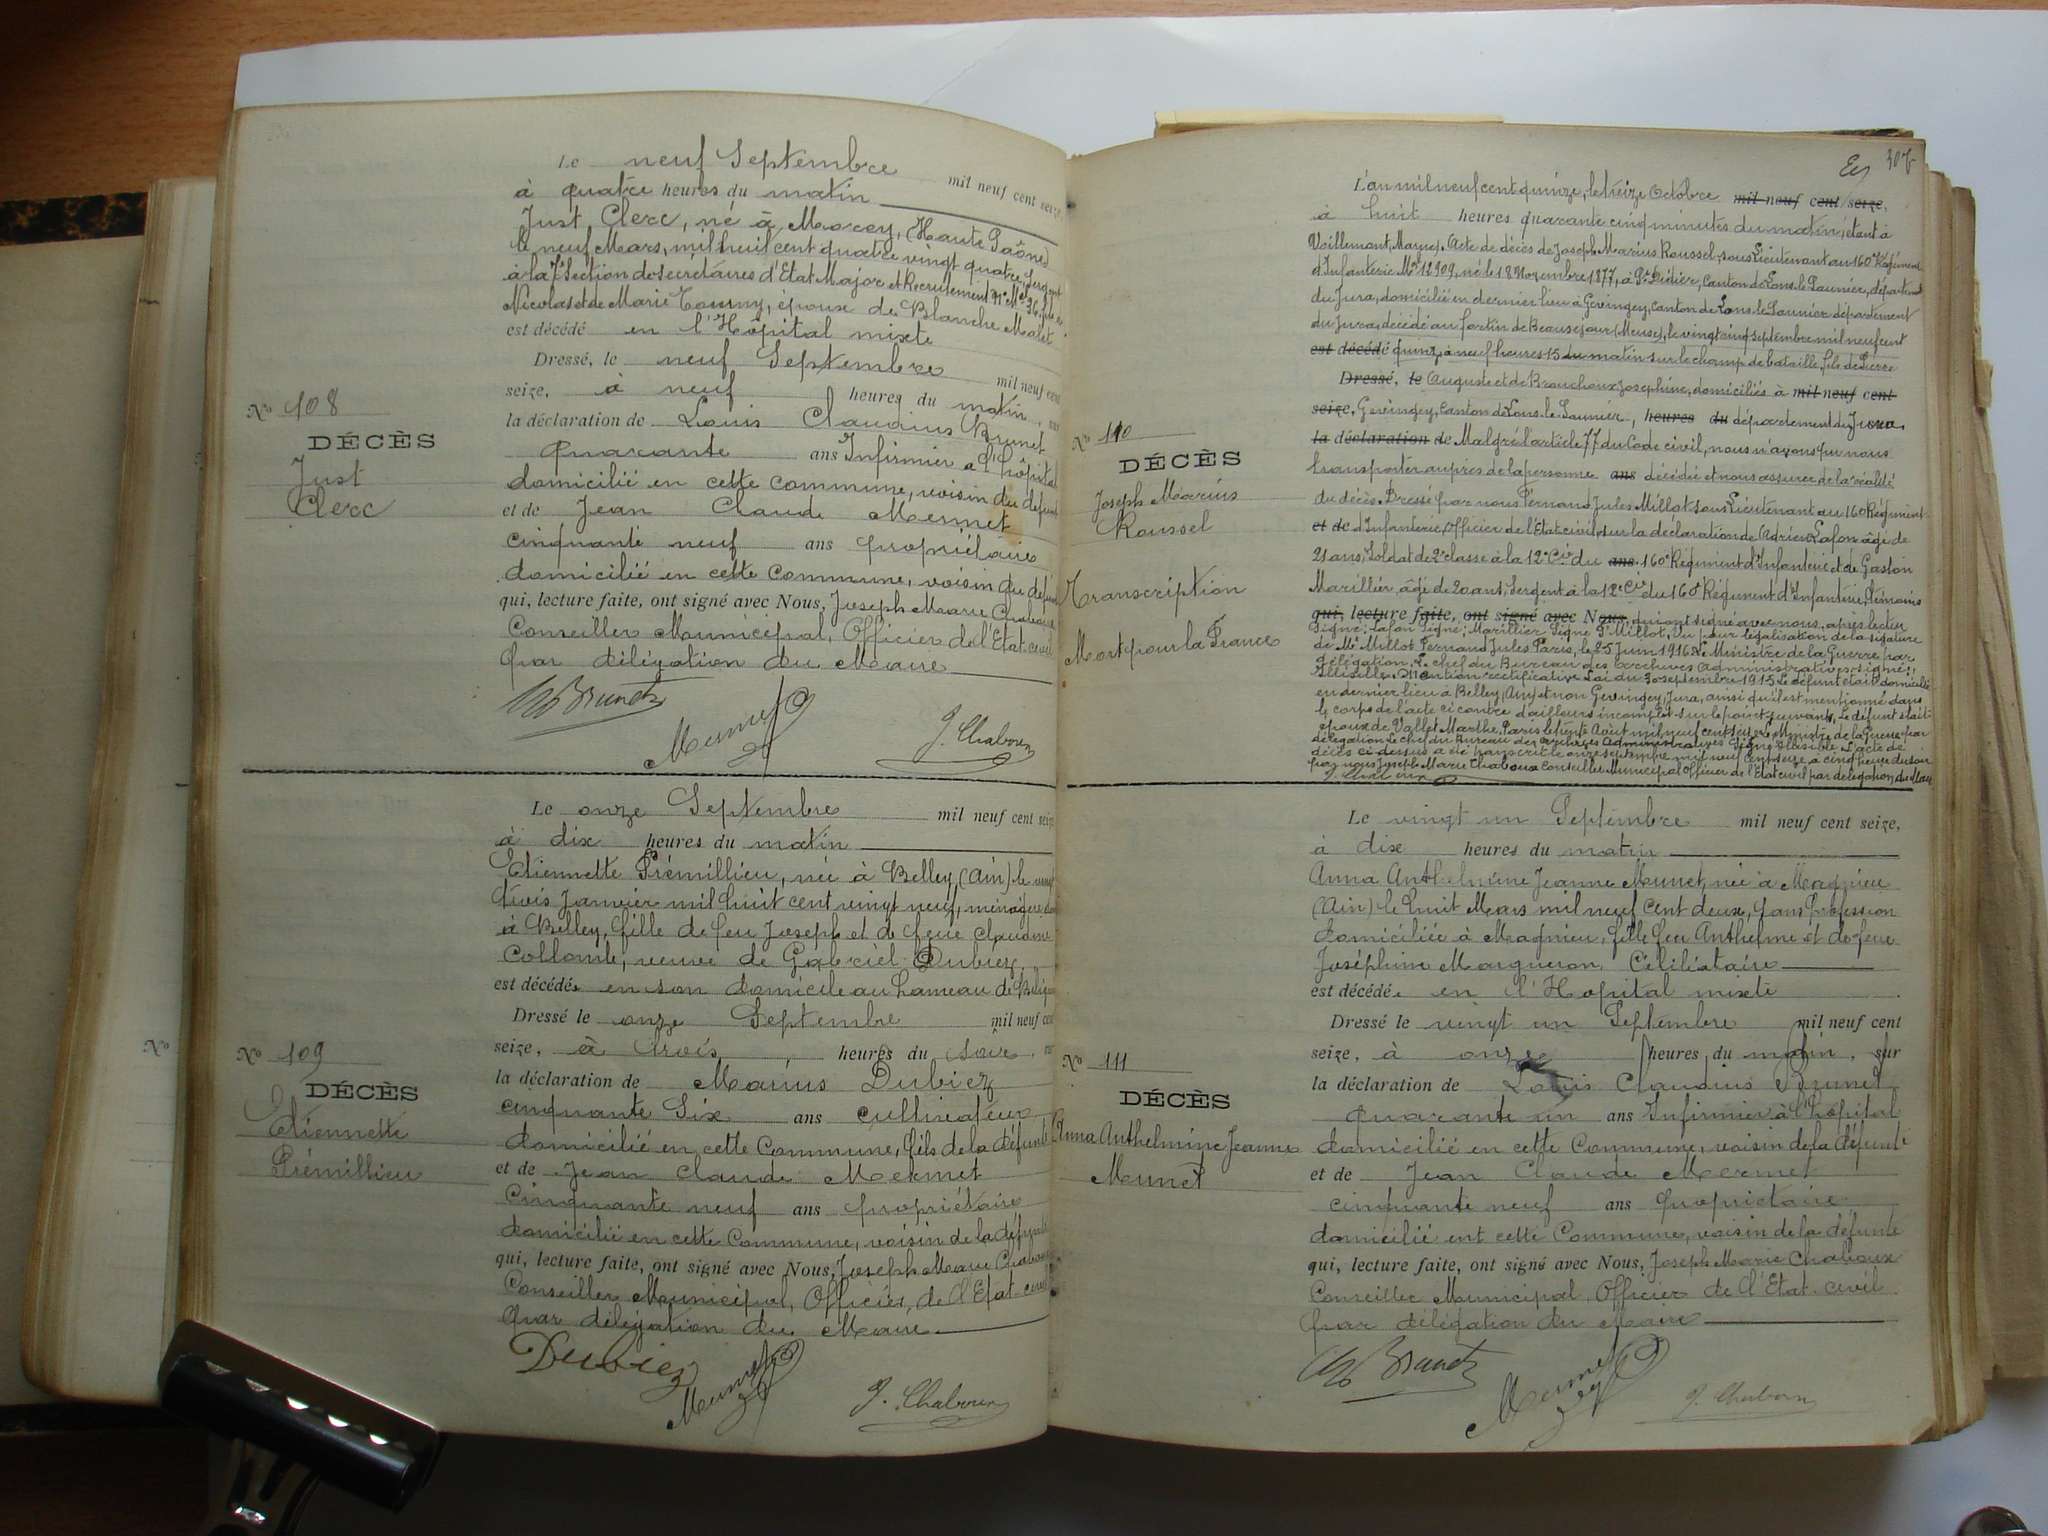 Le neuf Septembre mil neuf cent seize,
à quatre heures du matin
Just Clerc, né à (Haute Saône)
le neuf Mars, mil huit cent quatre vingt quatre, Sergent
à la 7e Section de Secrétaires d'Etat Major et Recrutement
Nicolas et de Marie Tourny, époux de Blanche Malet
est décédé en l'Hôpital mixte
Dressé, le neuf Septembre mil neuf cent
seize, à neuf heures du matin, sur
la déclaration de Louis Claudius Brunet
quarante ans Infirmier à l'hôpital
domicilié en cette commune, voisin du défunt
et de Jean Claude Mermet
cinquante neuf ans propriétaire
domicilié en cette Commune, voisin du défunt
qui, lecture faite, ont signé avec Nous, Joseph Marie Chaboux
Conseiller Municipal, Officier de l'Etat civil
par délégation du Maire
Brunet
Mermet
J. Chaboux
No 108
DÉCÈS
Just
Clerc
Le onze Septembre mil neuf cent seize
à dix heures du matin
Etiennette Prémillieu, née à Belley, (Ain) le vingt
trois Janvier mil huit cent vingt neuf, ménagère
à Belley, fille de feu Joseph et de feue Claudine
Collomb, veuve de Gabriel Dubiez,
est décédée en son domicile au hameau de
Dressé le onze Septembre mil neuf cent
seize, à trois heures du soir, sur
la déclaration de Marius Dubiez
cinquante six ans cultivateur
domicilié en cette Commune, fils de la défunte
et de Jean Claude Mermet
cinquante neuf ans propriétaire
domicilié en cette Commune, voisin de la défunte
qui, lecture faite, ont signé avec Nous, Joseph Marie Chaboux
Conseiller Municipal, Officier, de l'Etat civil
par délégation du Maire
Dubiez
Mermet
J. Chaboux
No
No 109
DÉCÈS
Etiennette
Prémillieu
307
L'an mil neuf cent quinze, le treize Octobre mil neuf cent seize,
à huit heures quarante cinq minutes du matin, étant à
Voillemont, Marne, Acte de décès de Joseph Marius Roussel, sous Lieutenant au 160e Régiment
d'Infanterie Mle 12909, né le 18 Novembre 1877, à St Didier, Canton de Lons le Saunier, département
du Jura, domicilié en dernier lieu à Gevingey, Canton de Lons le Saunier département
du Jura, décédé au fortin de Beauséjour (Meuse), le vingt cinq septembre mil neuf cent
est décédé quinze à neuf heures 15 du matin sur le champ de bataille, fils de Pierre
Dressé, le Auguste et de Josephine, domiciliés à mil neuf cent
seize, Gevingey, Canton de Lons le Saunier, heures du département du Jura.
la déclaration de Malgré l'article 77 du Code civil, nous n'avons pu nous
transporter auprès de la personne ans décédée et nous assurer de la réalité
du décès. Dressé par nous Fernand Jules Millot sous Lieutenant au 160 Régiment
et de d'Infanterie, Officier de l'Etat civil, sur la déclaration de Adrien Lafon âgé de
21 ans, Soldat de 2e classe à la 12e Cie du ans 160e Régiment d'Infanterie et de Gaston
Marillier, âgé de 20 ans, Sergent à la 12e Cie du 160e Régiment d'Infanterie, témoins
qui, lecture faite, ont signé avec Nous, qui ont signé avec nous, après lecture
Signé: Lafon Signé: Marillier Signé Millot. Vu pour légalisation de la signature
de Mr Millot Fernand Jules Paris, le 25 Juin 1916 Le Ministre de la Guerre par
délégation, Le chef du Bureau des archives administratives signé:
Mention rectificative Loi du 30 septembre 1915 Le défunt était domicilié
en dernier lieu à Belley, Ain, et non Gevingey, Jura, ainsi qu'il est mentionné dans
le corps de l'acte ci contre d'ailleurs incomplet sur le point suivant, Le défunt était
époux de Vallet Marthe, Paris le trente Août mil neuf cent seize Le Ministre de la guerre par
délégation Le chef du Bureau des archives administratives Signé illisible. L'acte de
décès ci-dessus a été transcrit le onze septembre mil neuf cent seize à cinq heures du soir
par nous Joseph Marie Chaboux Conseiller Municipal Officier de l'Etat civil par délégation du Maire
J. Chaboux
No 110
DÉCÈS
Joseph Marius
Roussel
Transcription
Mort pour la France
Le vingt un Septembre mil neuf cent seize,
à dix heures du matin
Anna Anthelmine Jeanne Munet, née à Magnieu
(Ain) le huit Mars mil neuf cent deux, sans profession
domiciliée à Magnieu, fille feu Anthelme et de feue
Joséphine Marqueron, Célibataire
est décédée en l'Hopital mixte
Dressé le vingt un Septembre mil neuf cent
seize, à onze heures du matin, sur
la déclaration de Louis Claudius Brunet
quarante un ans Infirmier à l'hôpital
domicilié en cette Commune, voisin de la défunte
et de Jean Claude Mermet
cinquante neuf ans propriétaire
domicilié ent cette Commune, voisin de la défunte
qui, lecture faite, ont signé avec Nous, Joseph Marie Chaboux
Conseiller Municipal Officier de l'Etat civil
par délégation du Maire
Brunet
Mermet
J. Chaboux
No 111
DÉCÈS
Anna Anthelmine Jeanne
Munet